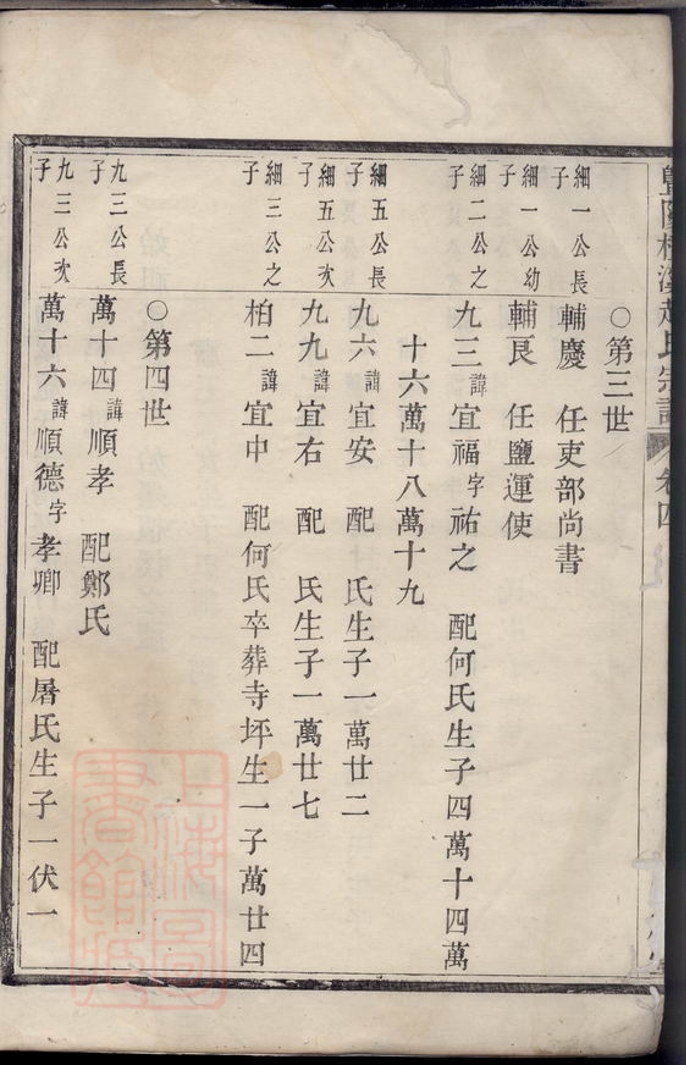 暨陽 趙氏宗譜 卷四
○第三世
細一公長子 輔慶 任吏部尚書
細一公幼子 輔良 任鹽運使
細二公之子 九三諱宜福字祐之 配何氏生子四萬十四萬
十六萬十八萬十九
細五公長子 九六諱宜安 配 氏生子一萬廿二
細五公次子 九九諱宜右 配 氏生子一萬廿七
細三公之子 柏二諱宜中 配何氏卒葬寺坪生一子萬廿四
○第四世
九三公長子 萬十四諱順孝 配鄭氏
九三公次子 萬十六諱順德字孝卿 配屠氏生子一伏一
上海圖書館藏